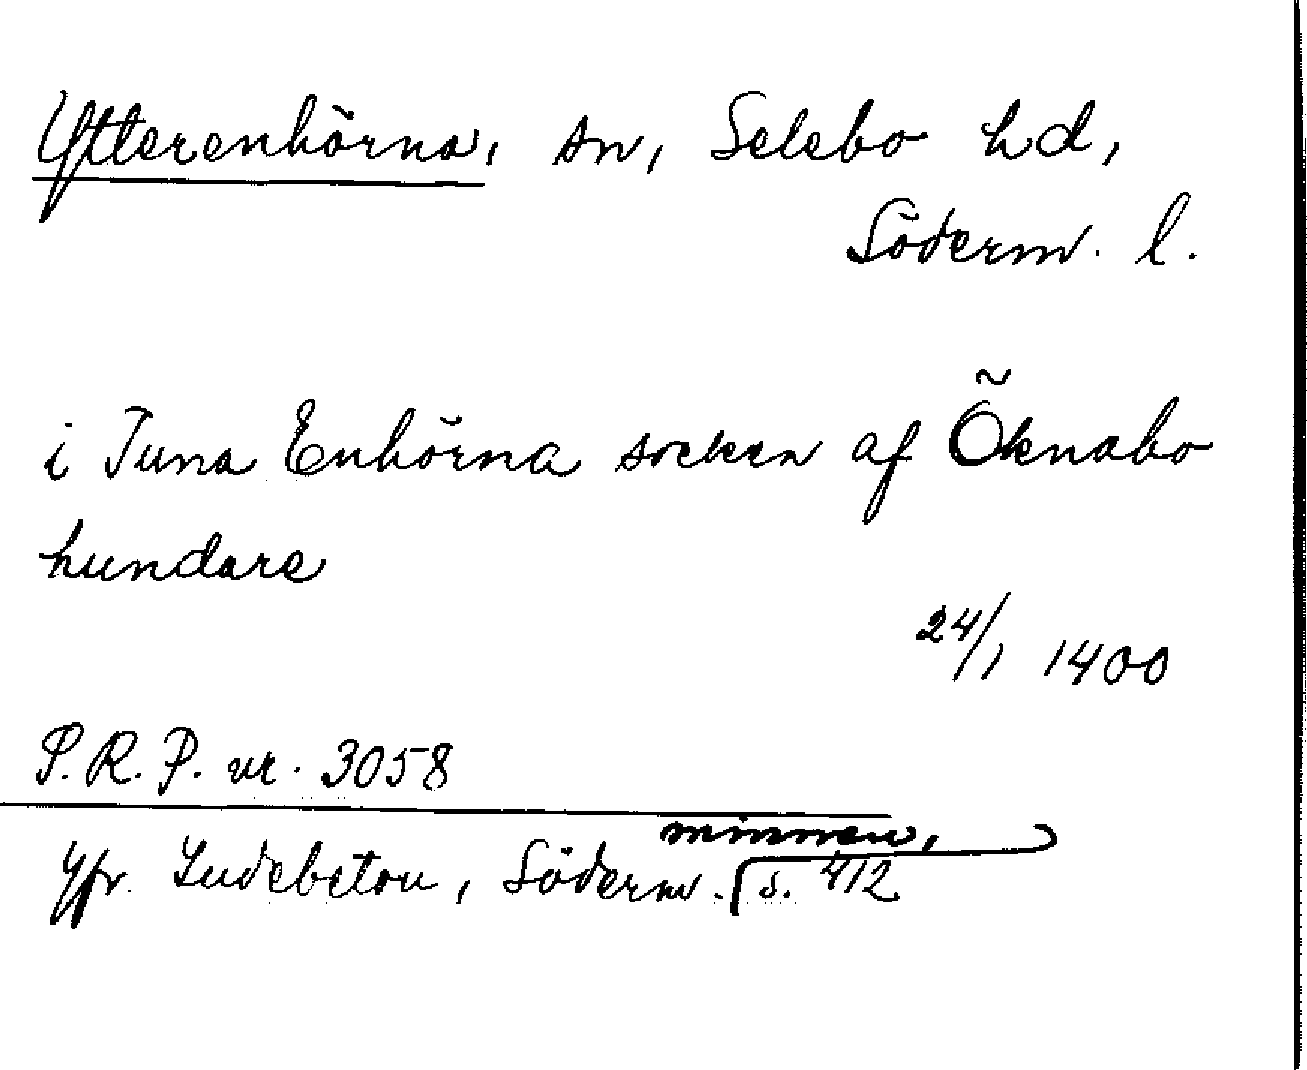 Ytterenhörna, sn, Selebo hd,
Söderm. l.
i Tuna Enhörna socken af Öknabo
hundare
24/1 1400
S.R.P. nr. 3058
Jfr. Ludebeton, Söderm. minnen, s. 412